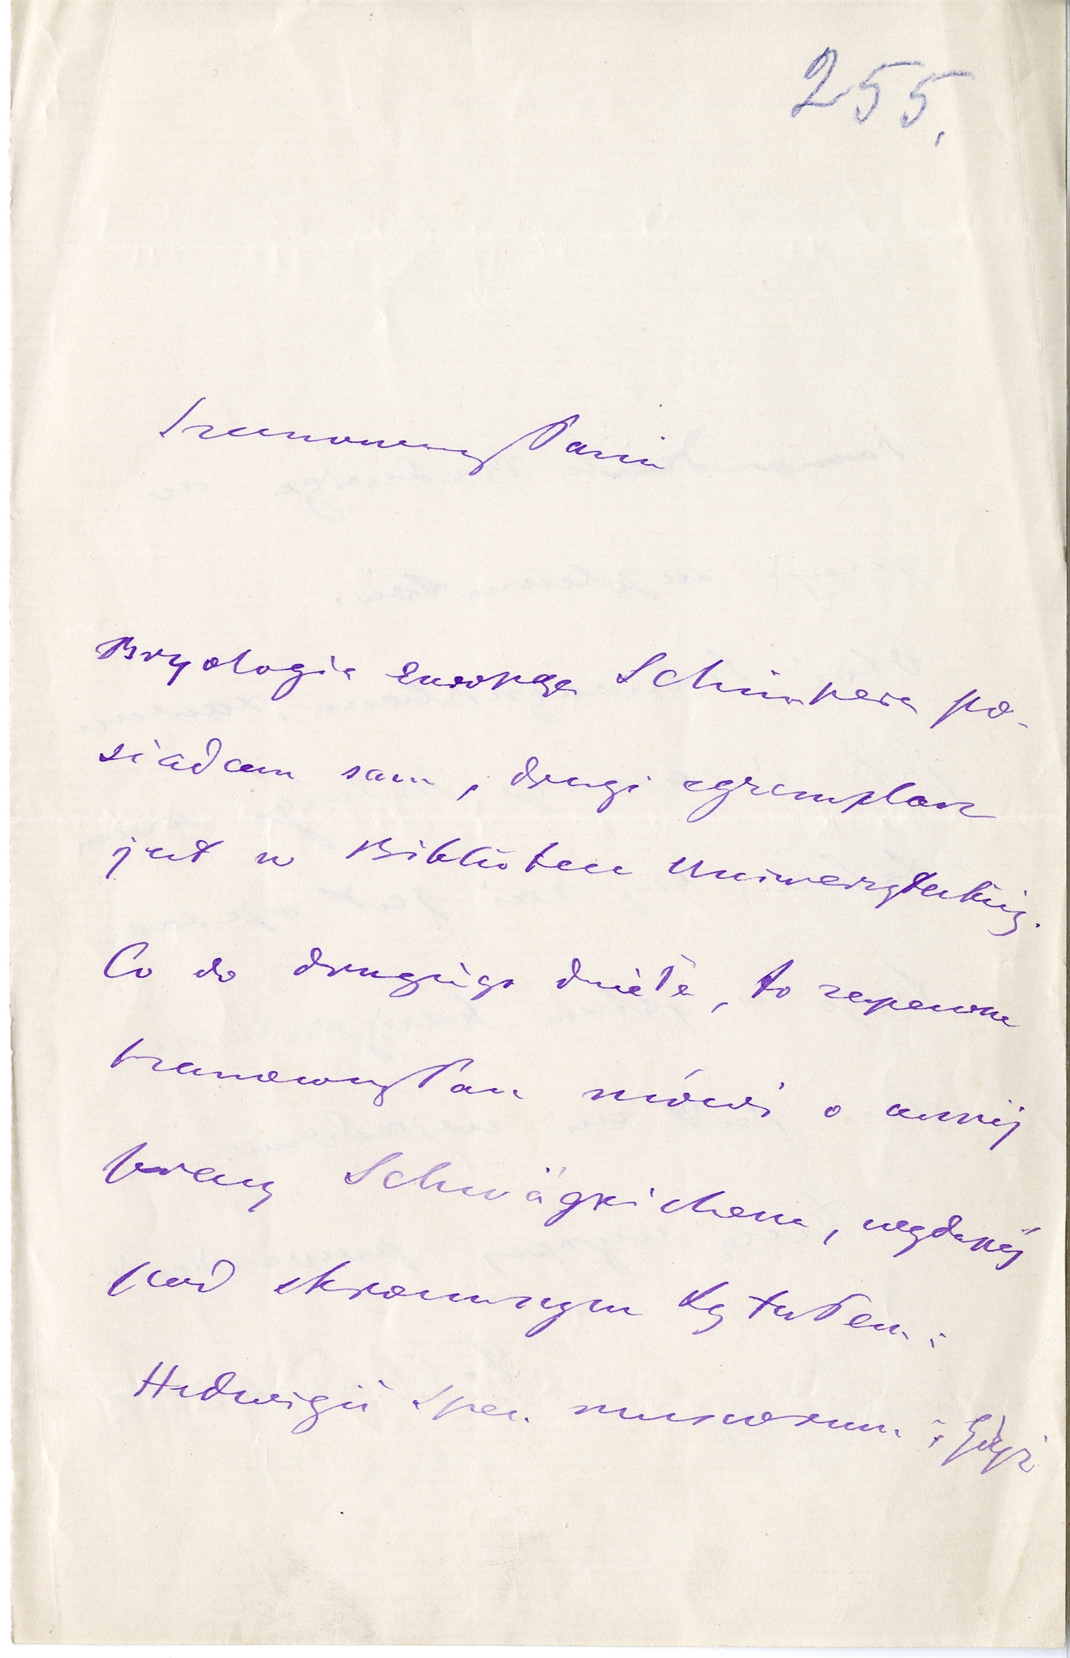 255.
Szanowny Panie
Bryologia Europaea Schimpera po-
siadam sam, drugi egzemplarz
jest w Bibliotece Uniwersyteckiej.
Co do drugiego dzieła, to zapewne
Szanowny Pan mówi o
pracy Schwägrichena, wydanej
pod skromnym tytułem:
Hedwigii Spec. muscorum;